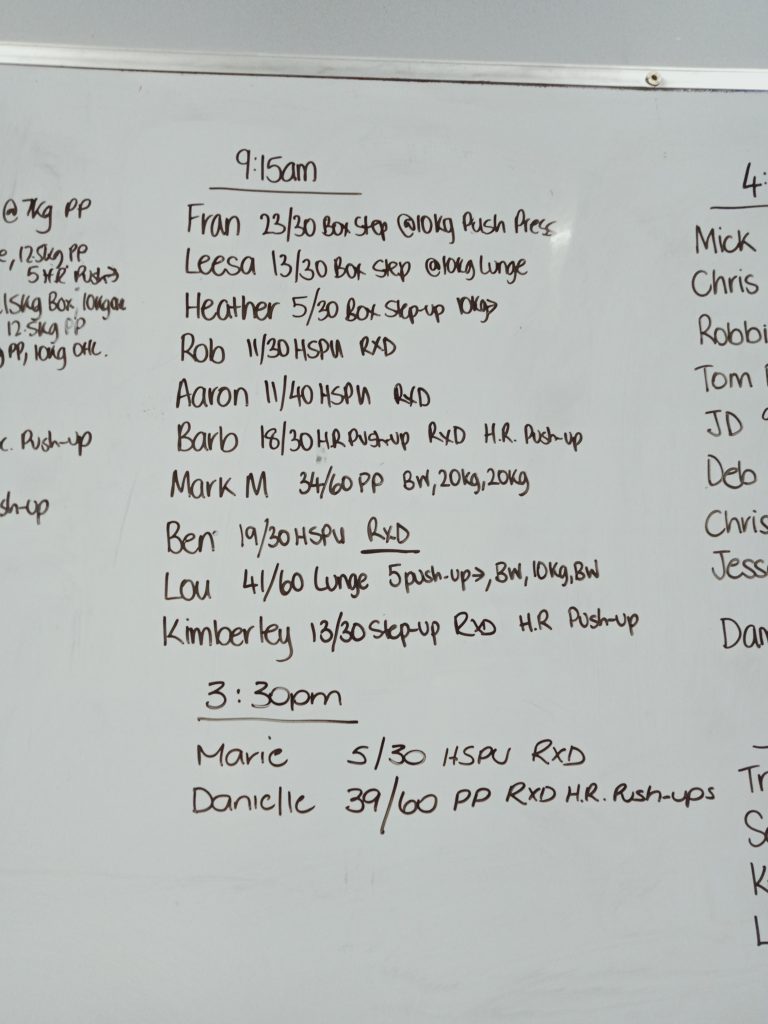 @ 7kg PP
12.5kg PP
5 H.R Push→
15kg Box, 10kg
12.5kg PP
PP, 10kg OHL.
Push-up
sh-up
9:15am
Fran 23/30 Box Step @10kg Push Press
Leesa 13/30 Box Step @10kg Lunge
Heather 5/30 Box Step-up 10kg→
Rob 11/30 HSPU RXD
Aaron 11/40 HSPU RXD
Barb 18/30 HR Push-up RXD H.R. Push-up
Mark M 34/60 PP BW, 20kg, 20kg
Ben 19/30 HSPU RXD
Lou 41/60 Lunge 5 push-up→, BW, 10kg, BW
Kimberley 13/30 Step-up RXD H.R Push-up
3:30pm
Marie 5/30 HSPU RXD
Danielle 39/60 PP RXD H.R. Push-ups
4:
Mick
Chris
Robbi
Tom
JD
Deb
Chris
Jess
Dan
Tr
K
L